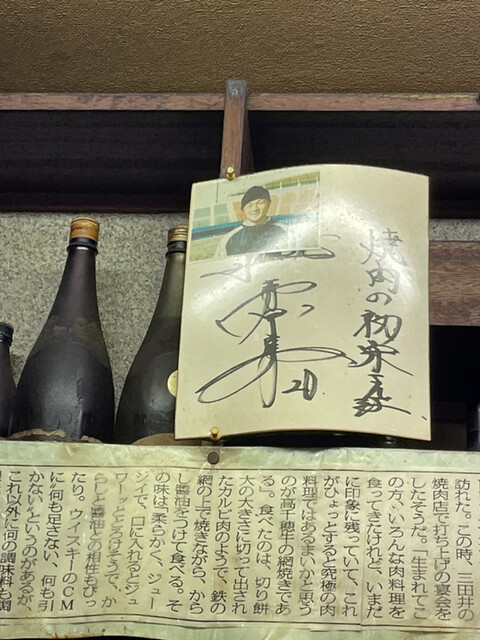 焼肉の初栄さん江
20
訪れた。この時、三田井の
焼肉店で打ち上げの宴会を
したそうだ。「生まれてこ
の方、いろんな肉料理を
食ってきたけれど、いまだ
に印象に残っていて、これ
がひょっとすると究極の肉
料理ではあるまいかと思う
のが高千穂牛の網焼きであ
る」。食べたのは、切り餅
大の大きさに切って出され
たカルビ肉のようで、鉄の
網の上で焼きながら、から
し醤油をつけて食べる。そ
の味は「柔らかく、ジュー
シイで、口に入れるとジュ
ワーッととろけそうで、か
らしと醤油との相性もぴっ
たり。ウイスキーのCM
に『何も足さない、何も引
かない』というのがあるが
これ以外に何の調味料も調